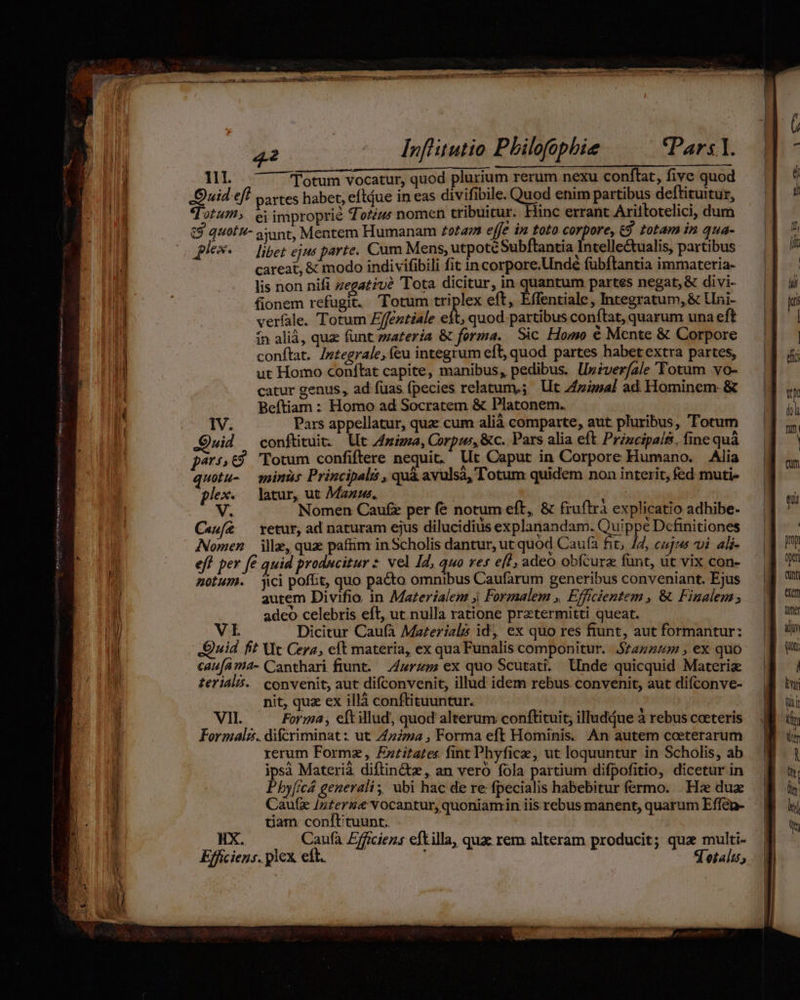 42 Inſtitutio Philoſophiæ Pars I.
III. Totum vocatur, quod plurium rerum nexu conſtat, ſive quod
Quid eſt partes habet, eſtque in eas diviſibile. Quod enim partibus deſtituitur,
Totum, ei impropriè Totius nomen tribuitur. Hinc errant Ariſtotelici, dum
& quotu- ajunt, Mentem Humanam totam eſſe in toto corpore, & totam in qua-
plex. libet ejus parte. Cum Mens, utpotè Subſtantia Intellectualis, partibus
careat, & modo indiviſibili ſit in corpore. Undè ſubſtantia immateria-
lis non niſi negativè Tota dicitur, in quantum partes negat, & divi-
ſionem refugit. Totum triplex eſt, Eſſentiale, Integratum, & Uni-
verſale. Totum Eſſentiale eſt, quod partibus conſtat, quarum una eſt
in aliâ, quæ ſunt materia & forma. Sic Homo è Mente & Corpore
conſtat. Integrale, ſeu integrum eſt, quod partes habet extra partes,
ut Homo conſtat capite, manibus, pedibus. Univerſale Totum vo-
catur genus, ad ſuas ſpecies relatum; Ut Animal ad Hominem &
Beſtiam : Homo ad Socratem & Platonem.
IV. Pars appellatur, quæ cum aliâ comparte, aut pluribus, Totum
Quid conſtituit. Ut Anima, Corpus, &c. Pars alia eſt Principalis, ſine quâ
pars, & Totum conſiſtere nequit. Ut Caput in Corpore Humano. Alia
quotu- minùs Principalis, quâ avulsâ, Totum quidem non interit, ſed muti-
plex. latur, ut Manus.
V. Nomen Cauſæ per ſe notum eſt, & fruſtrà explicatio adhibe-
Cauſæ retur, ad naturam ejus dilucidiùs explanandam. Quippe Definitiones
Nomen illæ, quæ paſſim in Scholis dantur, ut quòd Cauſa ſit, Id, cujus vi ali-
eſt per ſe quid producitur : vel Id, quo res eſt, adeò obſcuræ ſunt, ut vix con-
notum. jici poſſit, quo pacto omnibus Cauſarum generibus conveniant. Ejus
autem Diviſio in Materialem, Formalem, Efficientem, & Finalem,
adeò celebris eſt, ut nulla ratione prætermitti queat.
VI. Dicitur Cauſa Materialis id, ex quo res fiunt, aut formantur:
Quid ſit Ut Cera, eſt materia, ex qua Funalis componitur. Stannum, ex quo
cauſa ma- Canthari fiunt. Aurum ex quo Scutati. Unde quicquid Materiæ
terialis. convenit, aut diſconvenit, illud idem rebus convenit, aut diſconve-
nit, quæ ex illâ conſtituuntur.
VII. Forma, eſt illud, quod alterum conſtituit, illudque à rebus cœteris
Formalis. diſcriminat : ut Anima, Forma eſt Hominis. An autem cœterarum
rerum Formæ, Entitates ſint Phyſicæ, ut loquuntur in Scholis, ab
ipsâ Materiâ diſtinctæ, an verò ſola partium diſpoſitio, dicetur in
Phyſicâ generali; ubi hac de re ſpecialis habebitur ſermo. Hæ duæ
Cauſæ Internæ vocantur, quoniam in iis rebus manent, quarum Eſſen-
tiam conſtituunt.
IIX. Cauſa Efficiens eſt illa, quæ rem alteram producit; quæ multi-
Efficiens. plex eſt. Totalis,